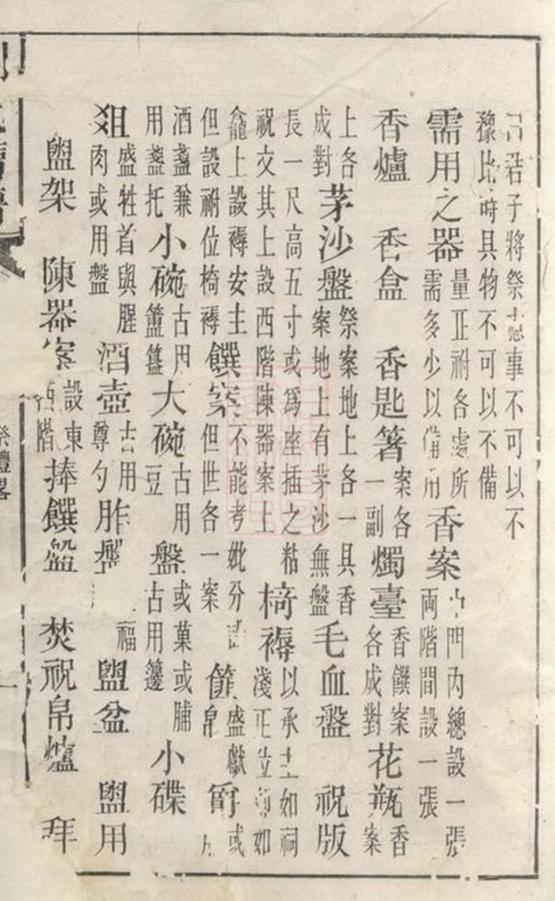 君子將祭慮事不可以不
豫比時具物不可以不備
需用之器量正祔各處所需多少以備用香案門內總設一張兩階間設一張
香爐 香盒 香匙箸案各一副燭臺香饌案各成對花瓶香案
上各成對茅沙盤祭案地上各一具香案地上有茅沙無盤毛血盤 祝版
長一尺高五寸或為座插之粘祝文其上設西階陳器案上椅褥以承主如祠
龕上設褥安主但設祔位椅褥饌案不能考妣分但世各一案篚盛獻帛爵或
酒盞兼用盞托小碗古用簠簋大碗古用豆盤或菓或脯古用籩小碟
俎盛牲首與腥肉或用盤酒壺古用尊勺胙盤福盥盆 盥用
盥架 陳器案設東西階捧饌盤 焚祝帛爐 拜
祭禮畧